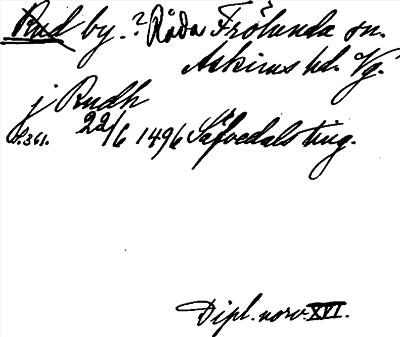 Rud by. ? Råda Frölunda sn.
Askims hd. Vg.
j Rudh
s. 361. 22/6 1496 Säfvedals ting.
Dipl. norv. XVI.